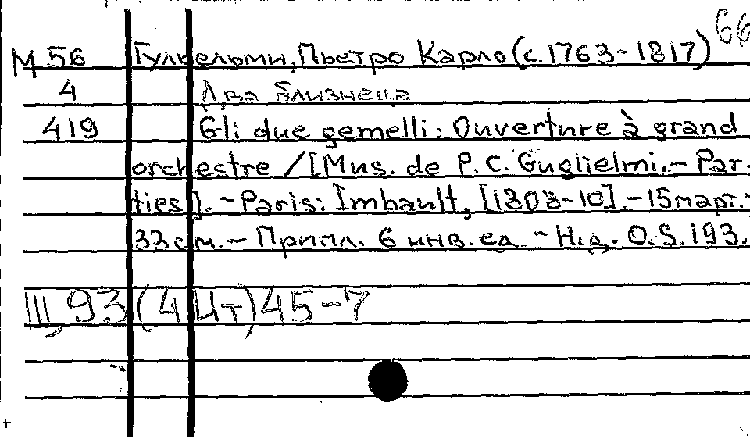 66
М 56 Гульельми, Пьетро Карло (с. 1763-1817)
4 Два близнеца
419 Gli due gemelli: Ouverture à grand
orchestre / [Mus. de P. C. Guglielmi. - Par-
ties]. - Paris: Imbault, [1803-10]. - 15 парт. -
33 см. - Прилл. 6 инв. ед. - Н.д. O.S. 193.
III, 93 (4 Ит) 45-7